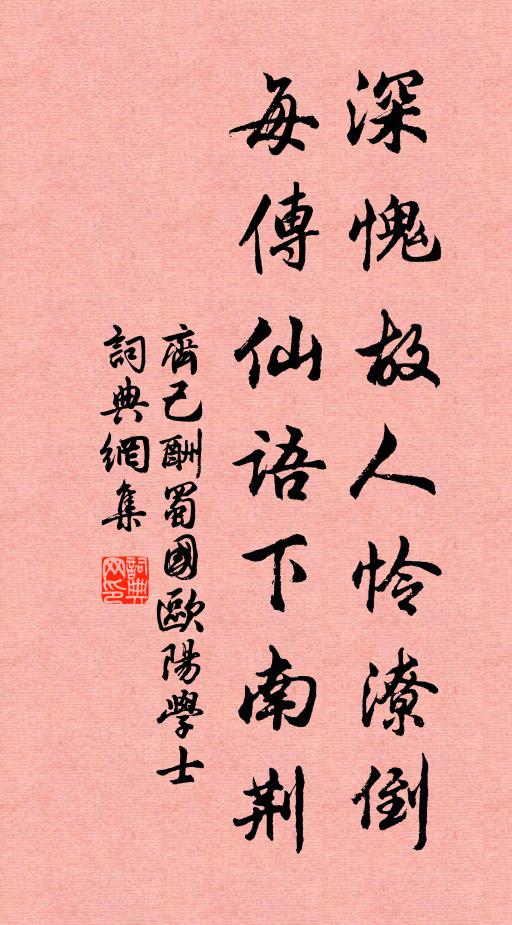 深愧故人怜潦倒
每傳仙语下南荆
齊己酬蜀國歐陽學士
詞典網集
詞典
网印